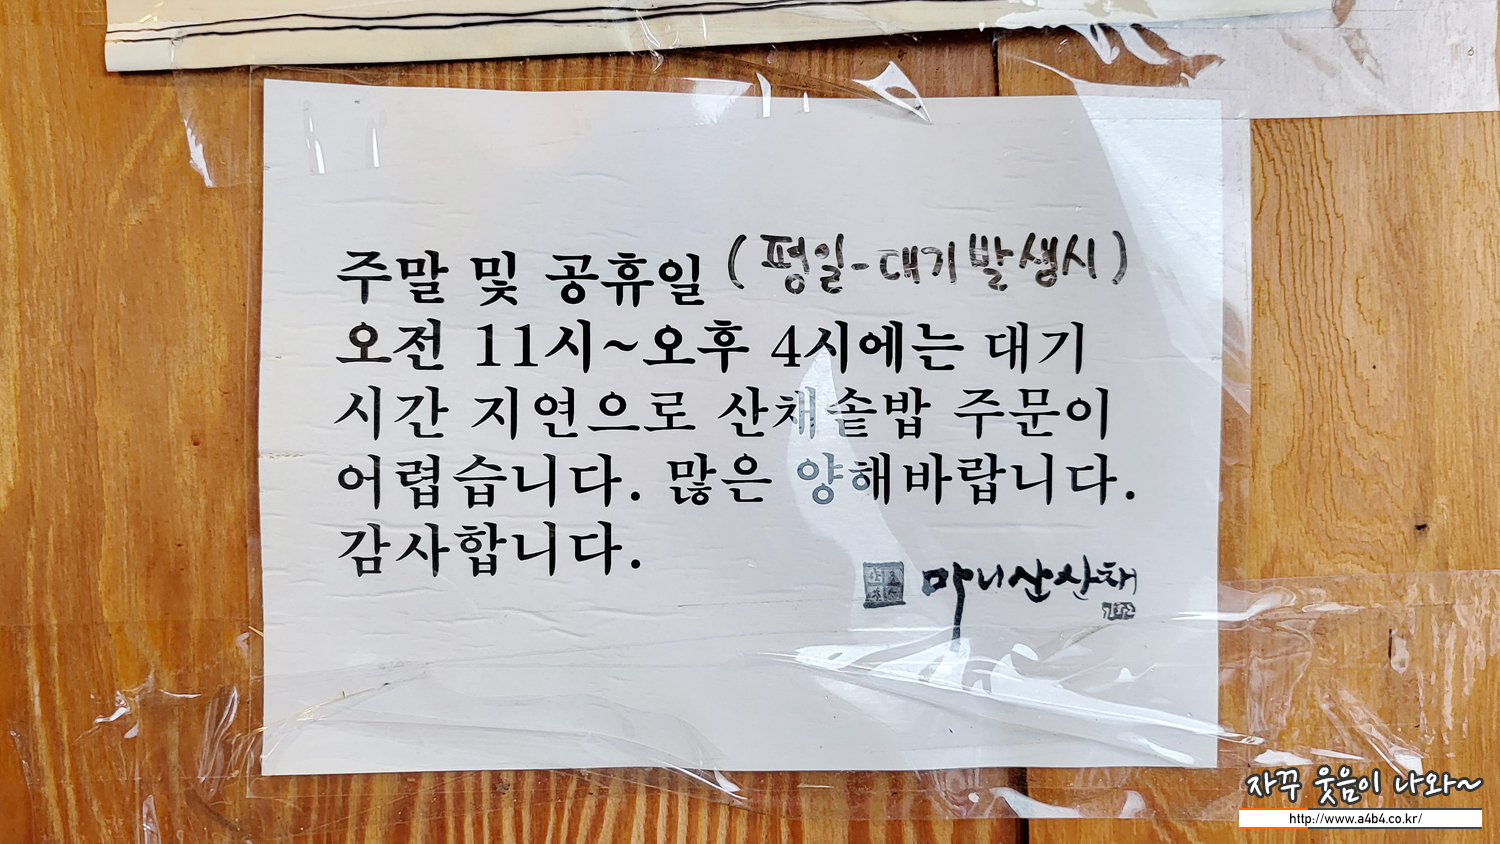 주말 및 공휴일 (평일-대기발생시)
오전 11시~오후 4시에는 대기
시간 지연으로 산채솥밥 주문이
어렵습니다. 많은 양해바랍니다.
감사합니다.
마니산산채
자꾸 웃음이 나와~
http://www.a4b4.co.kr/